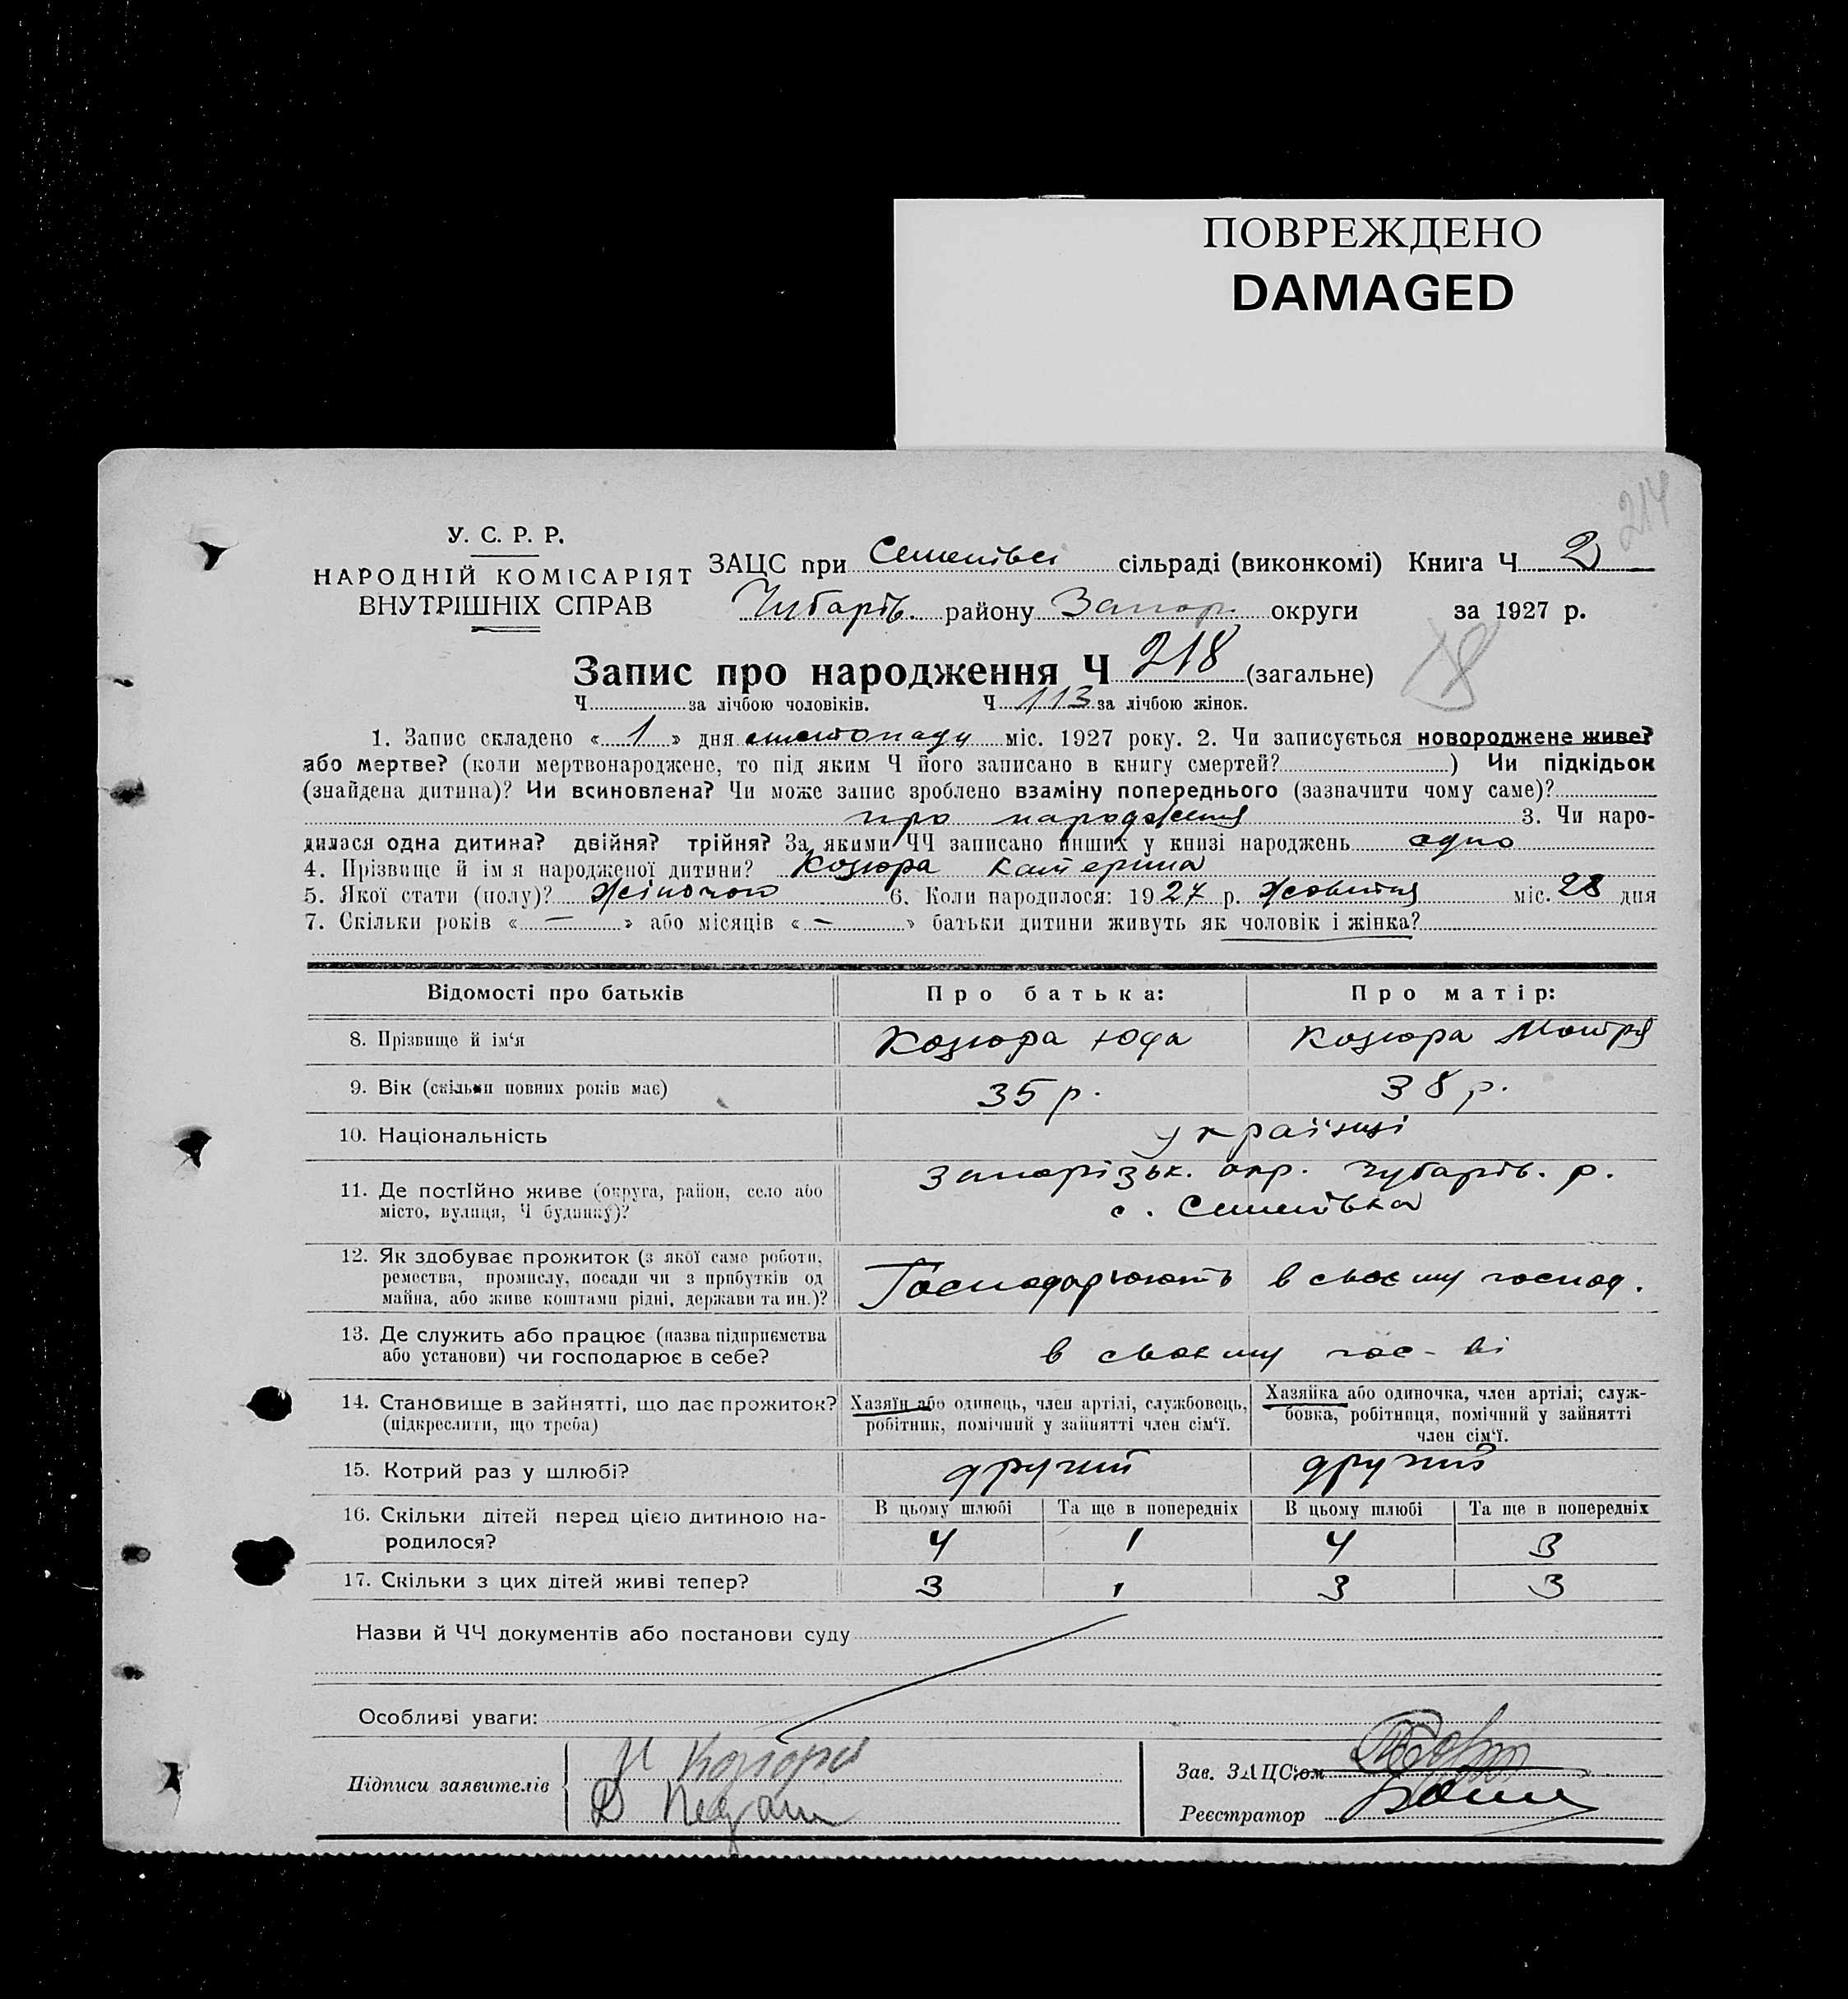 ПОВРЕЖДЕНО
DAMAGED
214
У. С. Р. Р.
НАРОДНІЙ КОМІСАРІЯТ
ВНУТРІШНІХ СПРАВ
ЗАЦС при Семенівсі сільраді (виконкомі) Книга Ч 2
Чубарів. району Запор. округи за 1927 р.
Запис про народження Ч 218 (загальне)
Ч за лічбою чоловіків. Ч 113 за лічбою жінок.
1. Запис складено « 1 » дня листопаду міс. 1927 року. 2. Чи записується новороджене живе?
або мертве? (коли мертвонароджене, то під яким Ч його записано в книгу смертей? ) Чи підкідьок
(знайдена дитина)? Чи всиновлена? Чи може запис зроблено взаміну попереднього (зазначити чому саме)?
про народження 3. Чи наро-
дилася одна дитина? двійня? трійня? За якими ЧЧ записано инших у книзі народжень одно
4. Прізвище й ім я народженої дитини? Козюра Катерина
5. Якої стати (полу)? Жіночою 6. Коли народилося: 1927 р. Жовтня міс. 28 дня
7. Скільки років « — » або місяців « – » батьки дитини живуть як чоловік і жінка?
Відомості про батьків Про батька: Про матір:
8. Прізвище й ім‘я Козюра Юда Козюра Мотря
9. Вік (скільки повних років має) 35 р. 38 р.
10. Національність українці
11. Де постійно живе (округа, район, село або
місто, вулиця, Ч будинку)? Запорізьк. окр. Чубарів. р.
с. Семенівка
12. Як здобуває прожиток (з якої саме роботи,
ремества, промислу, посади чи з прибутків од
майна, або живе коштами рідні, держави та ин.)? Господарюють в своєму господ.
13. Де служить або працює (назва підприємства
або установи) чи господарює в себе? в своєму гос-ві
14. Становище в зайнятті, що дає прожиток?
(підкреслити, що треба)
Хазяїн або одинець, член артілі, службовець,
робітник, помічний у зайнятті член сім‘ї.
Хазяйка або одиночка, член артілі; служ-
бовка, робітниця, помічний у зайнятті
член сім‘ї.
15. Котрий раз у шлюбі? другий другий
16. Скільки дітей перед цією дитиною на-
родилося?
В цьому шлюбі Та ще в попередніх В цьому шлюбі Та ще в попередніх
4 1 4 3
17. Скільки з цих дітей живі тепер? 3 1 3 3
Назви й ЧЧ документів або постанови суду
Особливі уваги:
Підписи заявителів
Козюра
Зав. ЗАЦС‘ом
Реєстратор